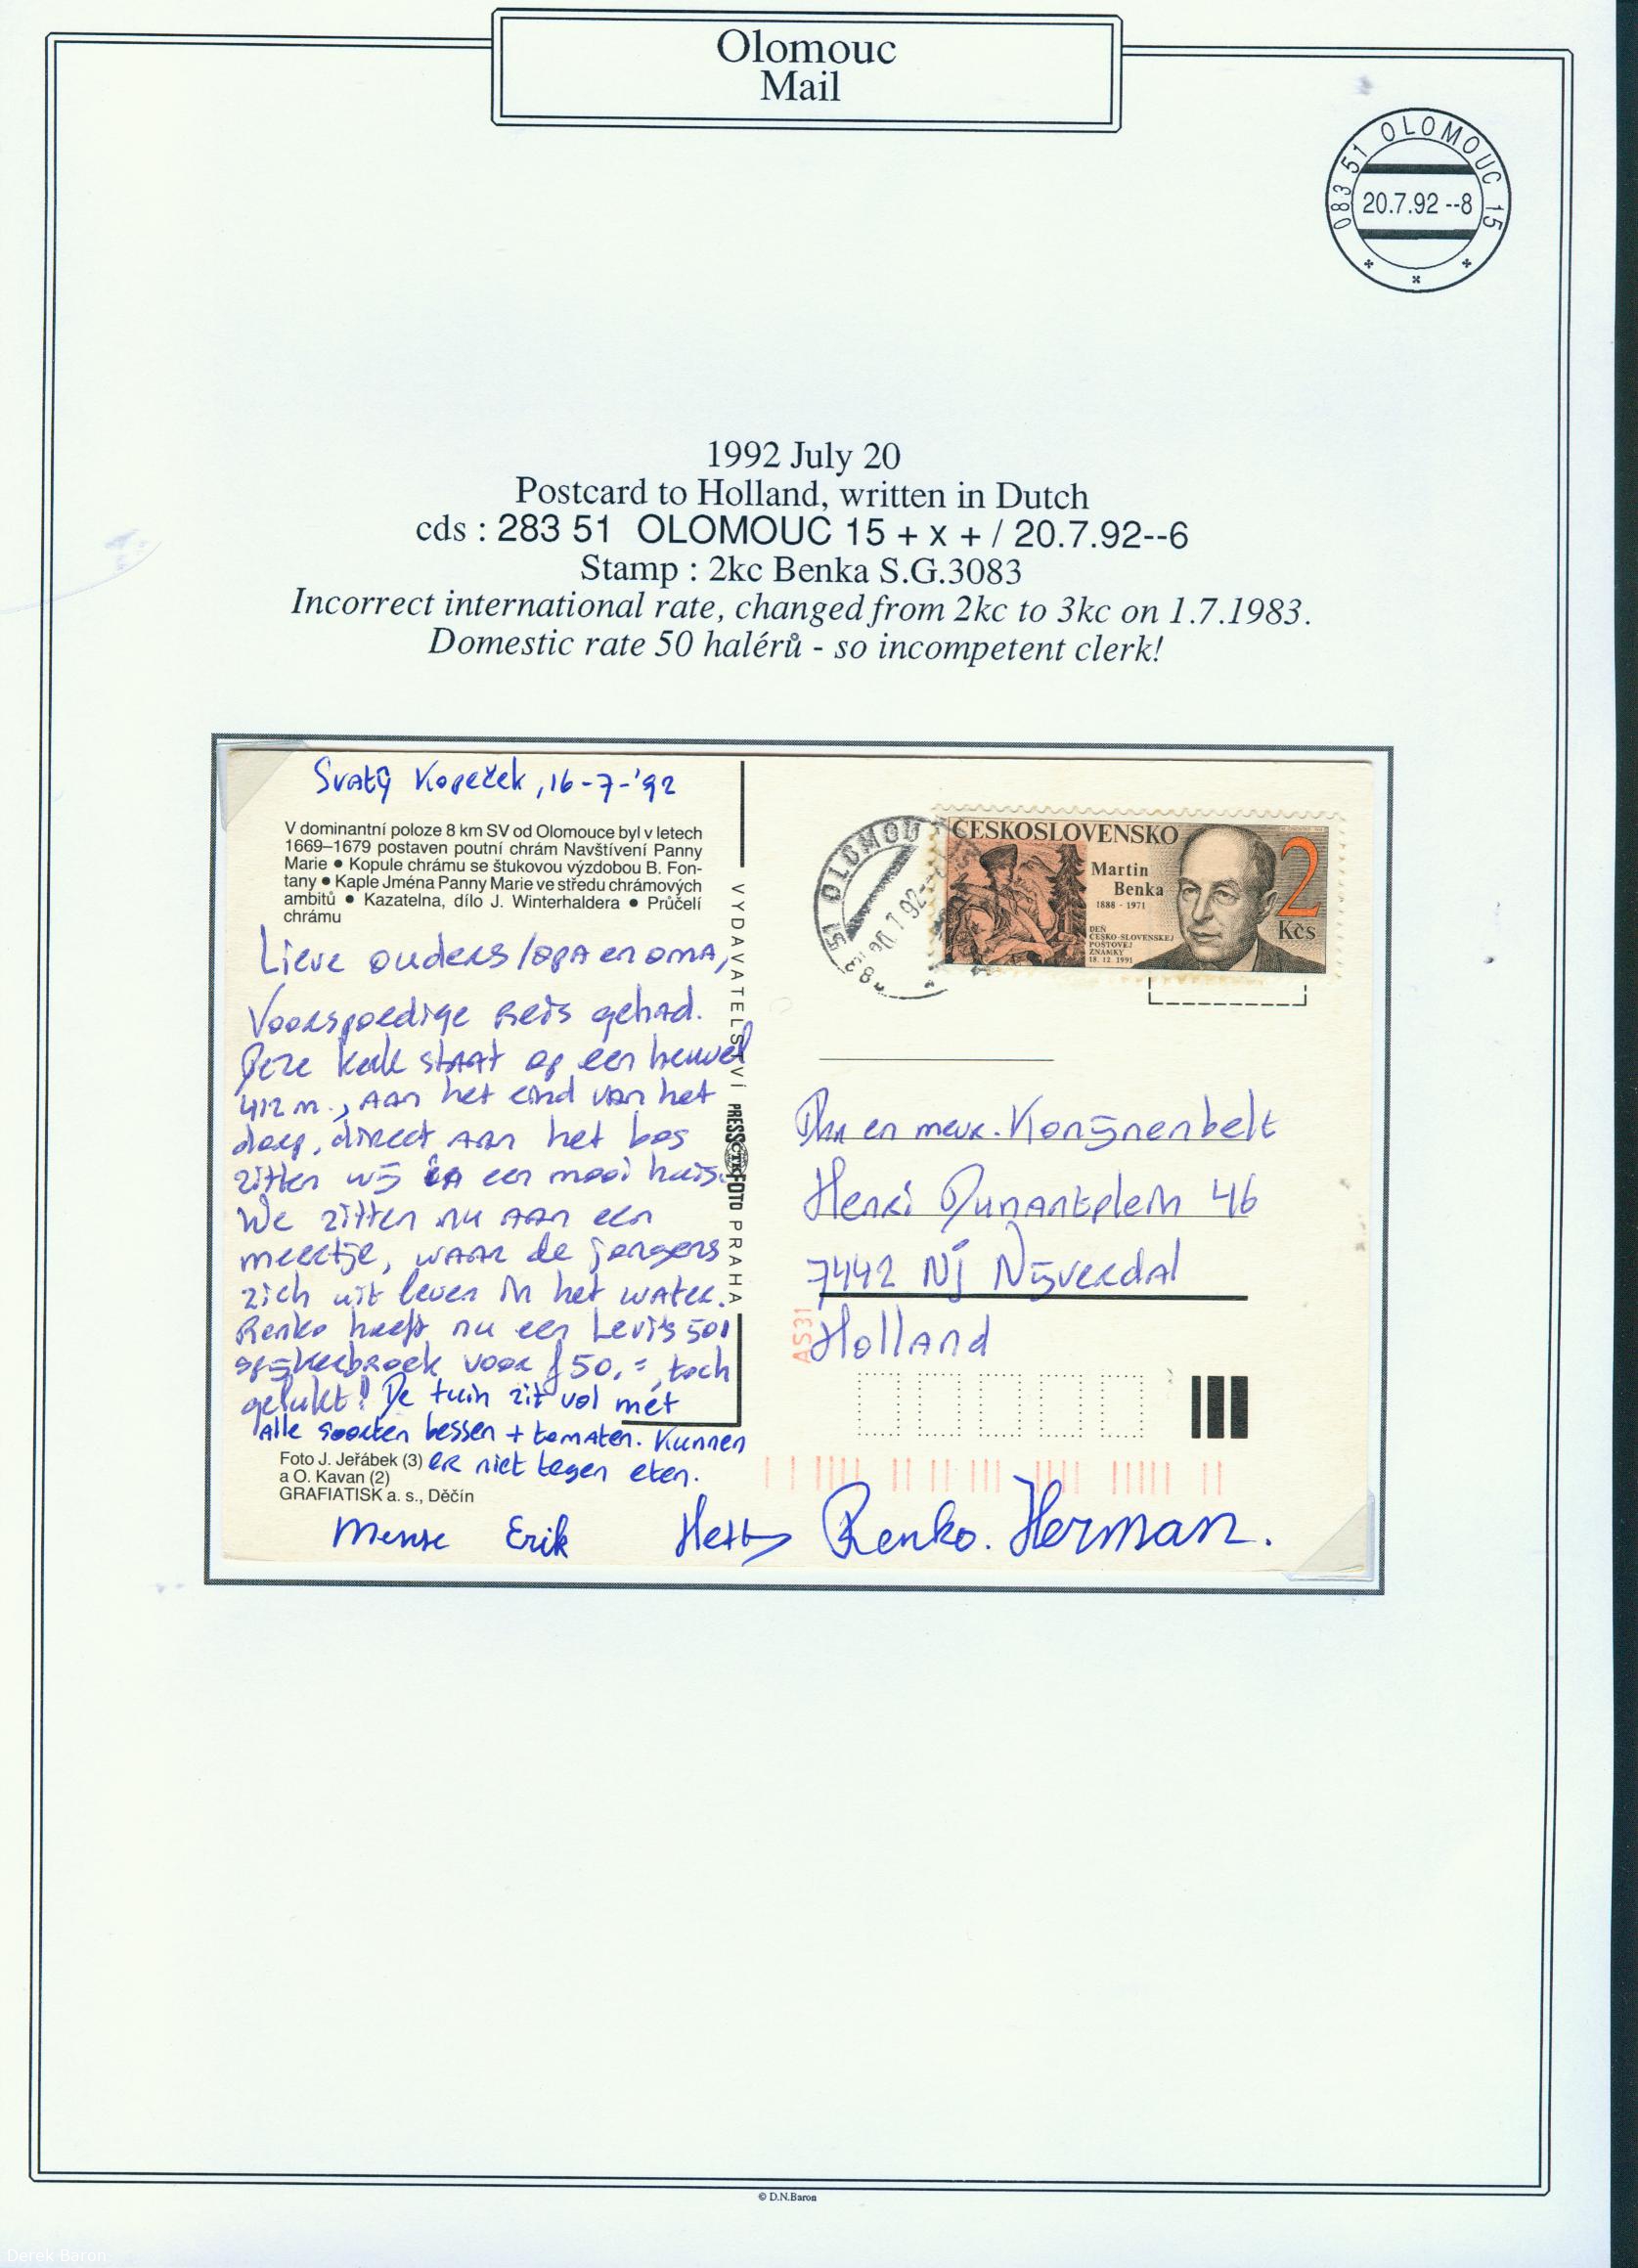 Olomouc
Mail
083 51 OLOMOUC 15
20.7.92 --8
1992 July 20
Postcard to Holland, written in Dutch
cds : 283 51 OLOMOUC 15 + x + / 20.7.92--6
Stamp : 2kc Benka S.G.3083
Incorrect international rate, changed from 2kc to 3kc on 1.7.1983.
Domestic rate 50 halérů - so incompetent clerk!
Svatý Kopeček, 16-7-'92
V dominantní poloze 8 km SV od Olomouce byl v letech
1669–1679 postaven poutní chrám Navštívení Panny
Marie ● Kopule chrámu se štukovou výzdobou B. Fon-
tany ● Kaple Jména Panny Marie ve středu chrámových
ambitů ● Kazatelna, dílo J. Winterhaldera ● Průčelí
chrámu
Lieve ouders/opa en oma,
Voorspoedige reis gehad.
Deze kerk staat op een heuvel
412 m., aan het eind van het
dorp, direct aan het bos
zitten wij in een mooi huis.
We zitten nu aan een
meertje, waar de jongens
zich uit leven in het water.
Renko heeft nu een Levi's 501
spijkerbroek voor ƒ50,=, toch
gelukt! De tuin zit vol met
alle soorten bessen + tomaten. Kunnen
er niet tegen eten.
Foto J. Jeřábek (3)
a O. Kavan (2)
GRAFIATISK a. s., Děčín
Mense Erik Hetty Renko. Herman.
VYDAVATELSTVÍ PRESSFOTO PRAHA
ČTK
51 OLOMOUC
20.7.92
ČESKOSLOVENSKO
Martin
Benka
1888 - 1971
DEŇ
ČESKO-SLOVENSKEJ
POŠTOVEJ
ZNÁMKY
18. 12. 1991
2
Kčs
Dhr en mevr. Konijnenbelt
Henri Dunantplein 46
7442 NJ Nijverdal
Holland
AS31
© D.N.Baron
Derek Baron